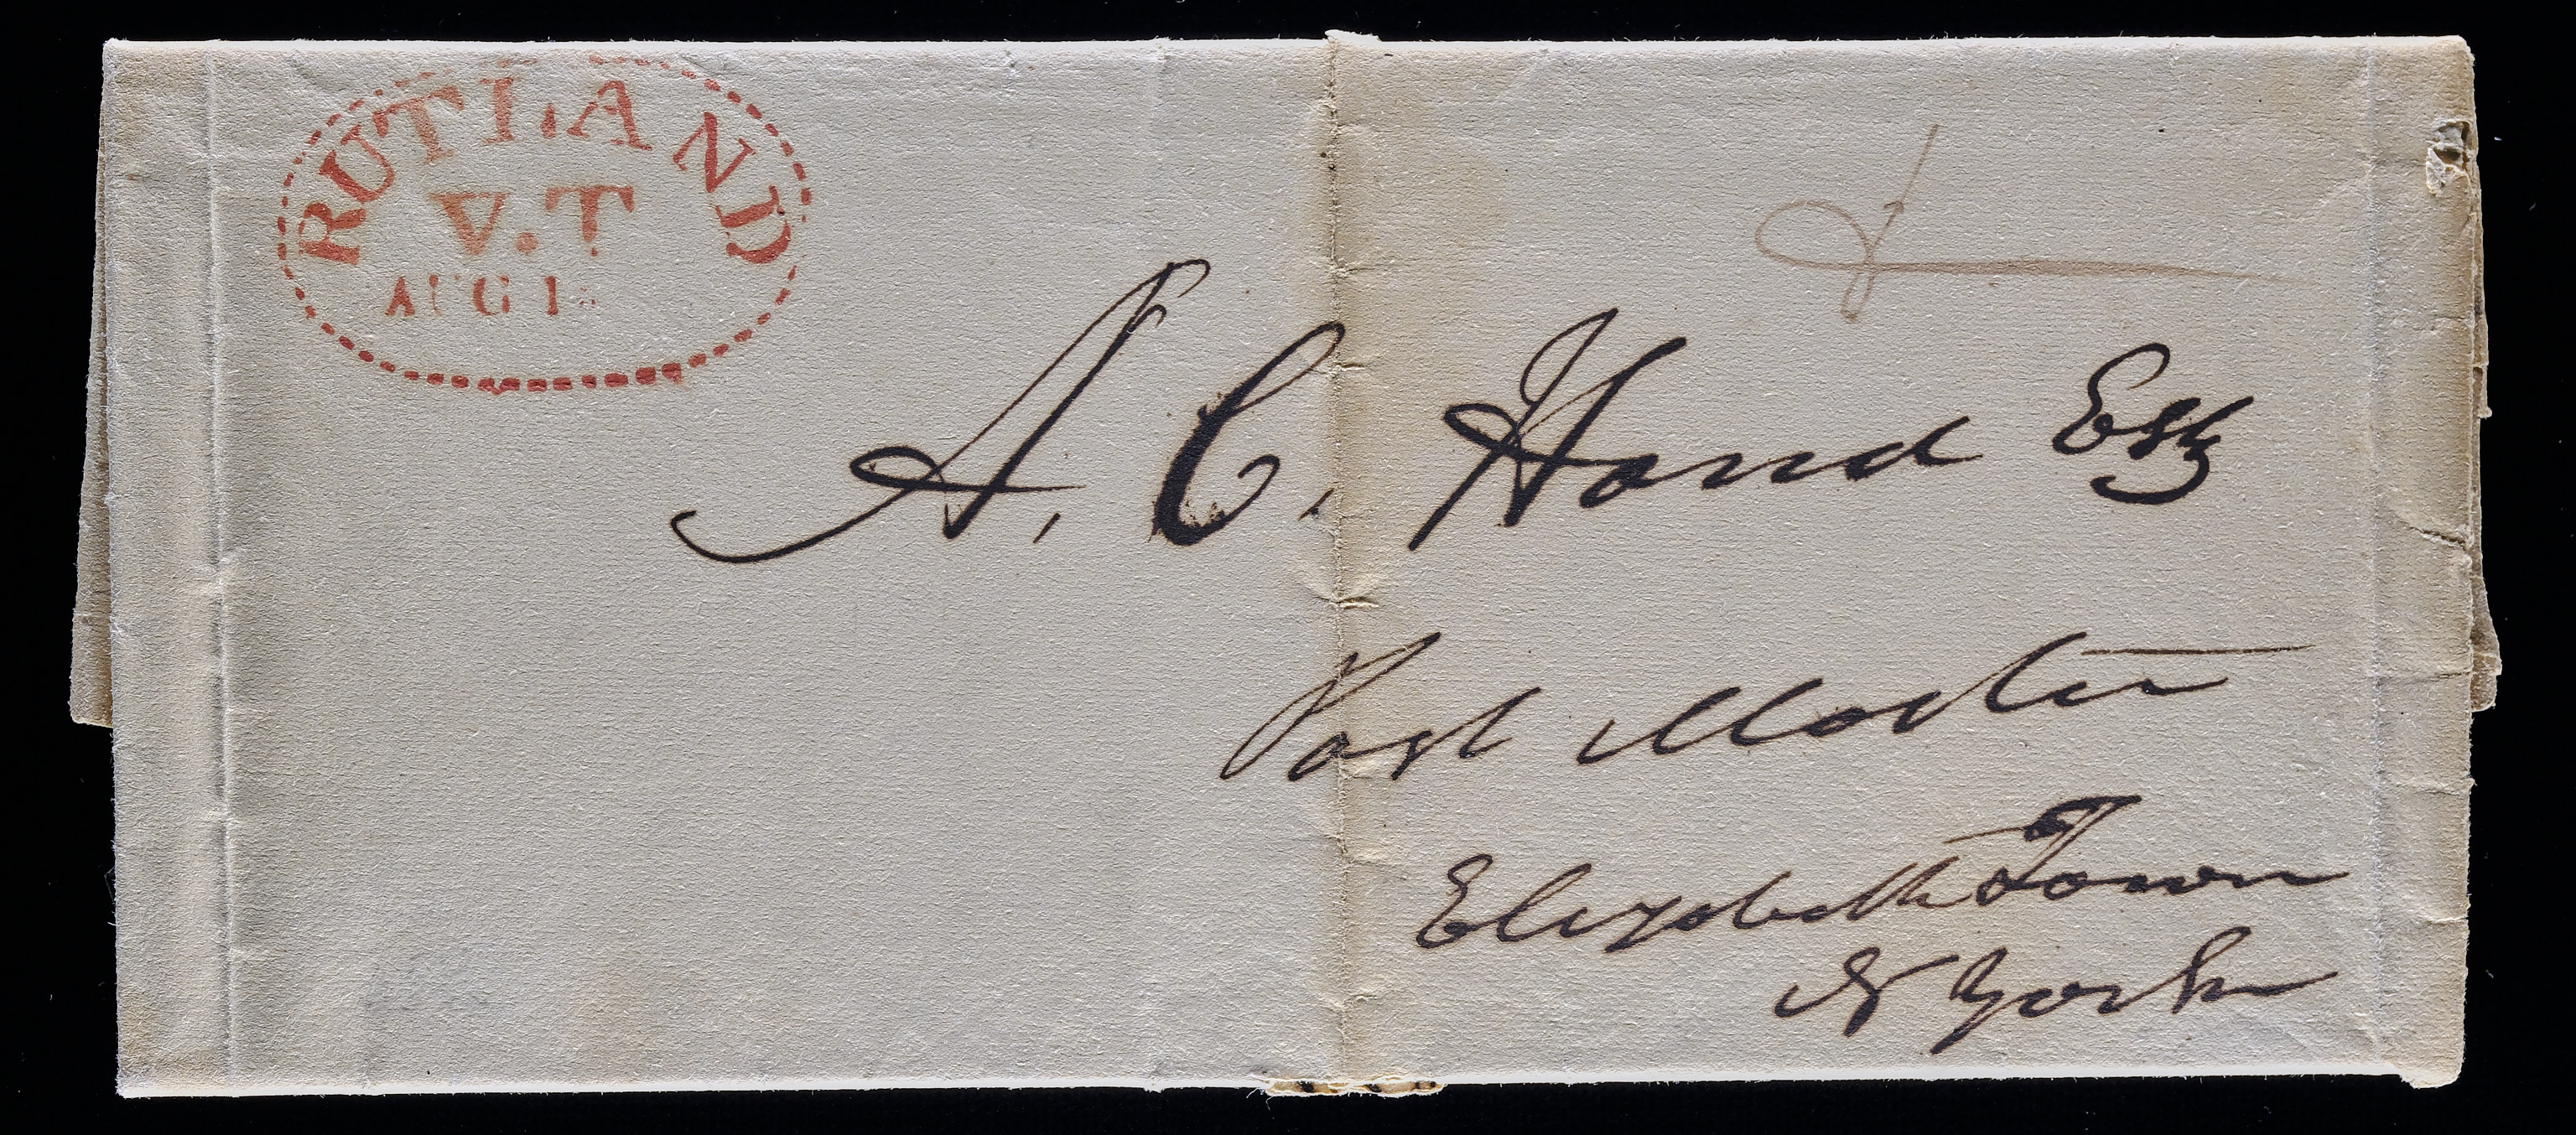 RUTLAND
V.T
AUG
A. C. Hand Esq
Post Master
Elizabeth Town
N York